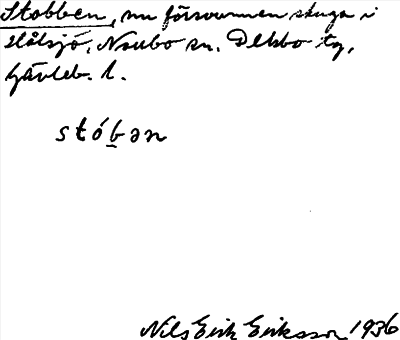 Stobben, nu försvunnen stuga i
Slåsjö, Norrbo sn. Delsbo tg,
Gävleb. l.
stóbən
Nils Erik Eriksson 1936